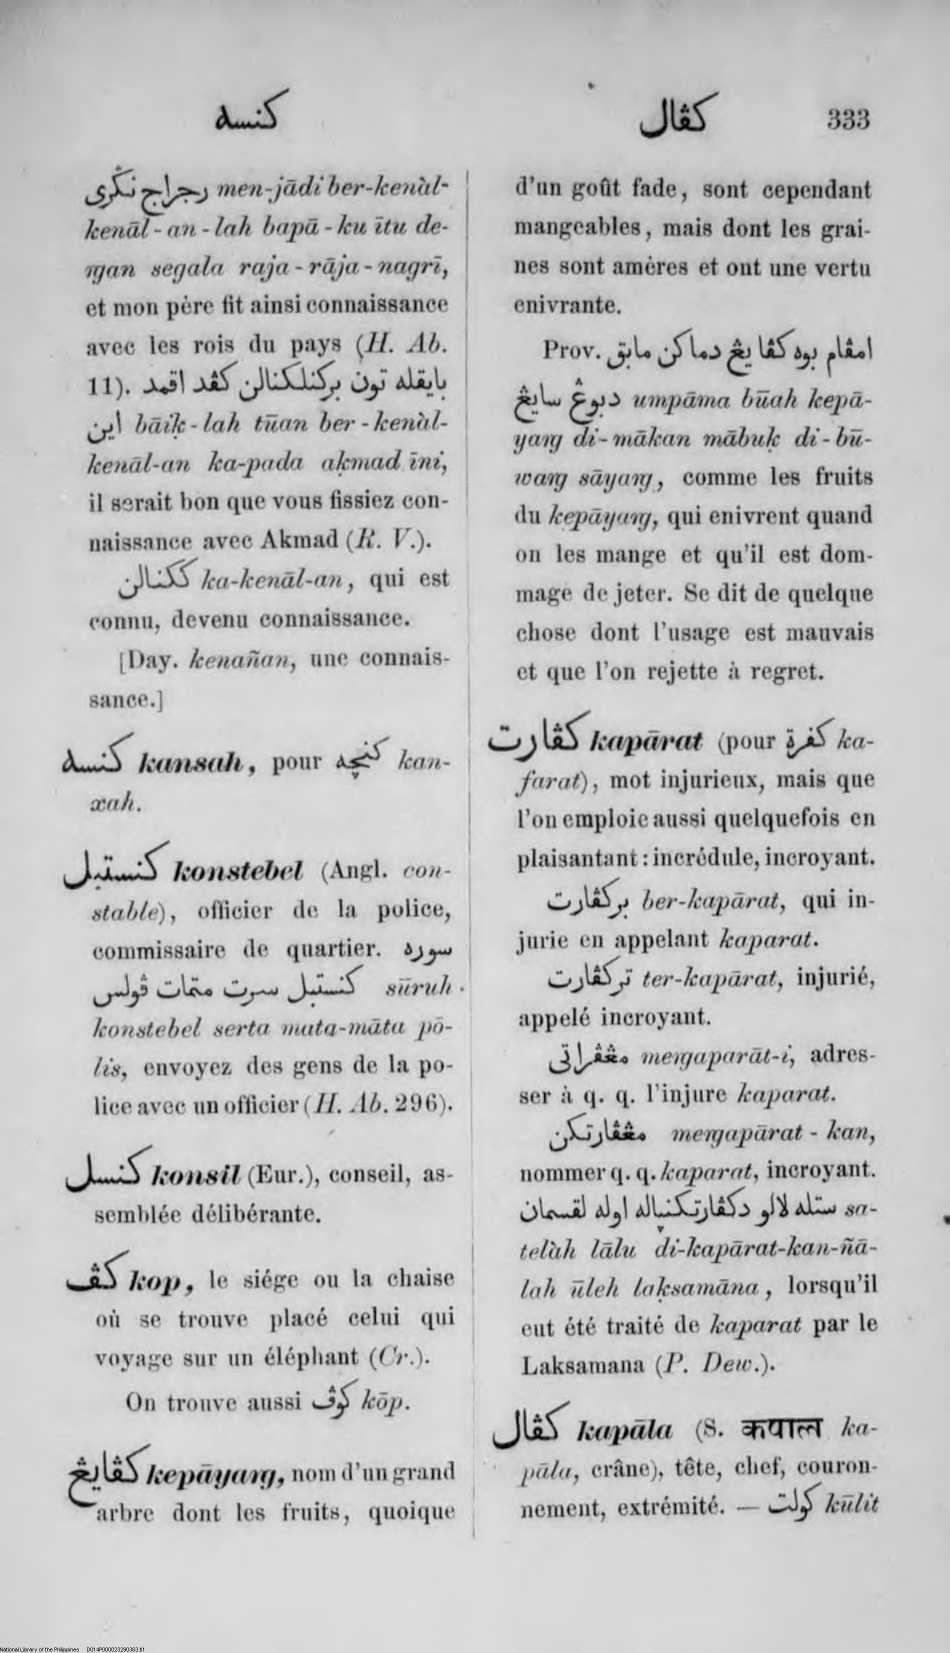 كنسه
كڤال 333
رجراج نڬري men-jādi ber-kenàl-
kenāl-an-lah bapā-ku ītu de-
ngan segala raja-rāja-nagrī,
et mon père fit ainsi connaissance
avec les rois du pays (H. Ab.
11). بايقله تون بركنلكنالن كڤد اقمد
اين bāiḳ-lah tūan ber-kenàl-
kenāl-an ka-pada aḳmad īni,
il serait bon que vous fissiez con-
naissance avec Akmad (R. V.).
ككنالن ka-kenāl-an, qui est
connu, devenu connaissance.
[Day. kenañan, une connais-
sance.]
كنسه kansah, pour كنچه kan-
xah.
كنستبل konstebel (Angl. con-
stable), officier de la police,
commissaire de quartier. سوره
كنستبل سرت متمات ڤولس sūruh
konstebel serta mata-māta pō-
lis, envoyez des gens de la po-
lice avec un officier (H. Ab. 296).
كنسل konsil (Eur.), conseil, as-
semblée délibérante.
كڤ kop, le siége ou la chaise
où se trouve placé celui qui
voyage sur un éléphant (Cr.).
On trouve aussi كوڤ kōp.
كڤايڠ kepāyang, nom d'un grand
arbre dont les fruits, quoique
d'un goût fade, sont cependant
mangeables, mais dont les grai-
nes sont amères et ont une vertu
enivrante.
Prov. امڤام بوه كڤايڠ دماكن مابق
دبوڠ سايڠ umpāma būah kepā-
yang di-mākan mābuḳ di-bū-
wang sāyang, comme les fruits
du kepāyang, qui enivrent quand
on les mange et qu'il est dom-
mage de jeter. Se dit de quelque
chose dont l'usage est mauvais
et que l'on rejette à regret.
كڤارت kapārat (pour كفرة ka-
farat), mot injurieux, mais que
l'on emploie aussi quelquefois en
plaisantant : incrédule, incroyant.
بركڤارت ber-kapārat, qui in-
jurie en appelant kaparat.
تركڤارت ter-kapārat, injurié,
appelé incroyant.
مڠڤراتي mengaparāt-i, adres-
ser à q. q. l'injure kaparat.
مڠڤارتكن mengapārat-kan,
nommer q. q. kaparat, incroyant.
ستله لالو دكڤارتكنياله اوله لقسمان sa-
telàh lālu di-kapārat-kan-ñā-
lah ūleh laḳsamāna, lorsqu'il
eut été traité de kaparat par le
Laksamana (P. Dew.).
كڤال kapāla (S. कपाल ka-
pāla, crâne), tête, chef, couron-
nement, extrémité. — كولت kūlit
National Library of the Philippines